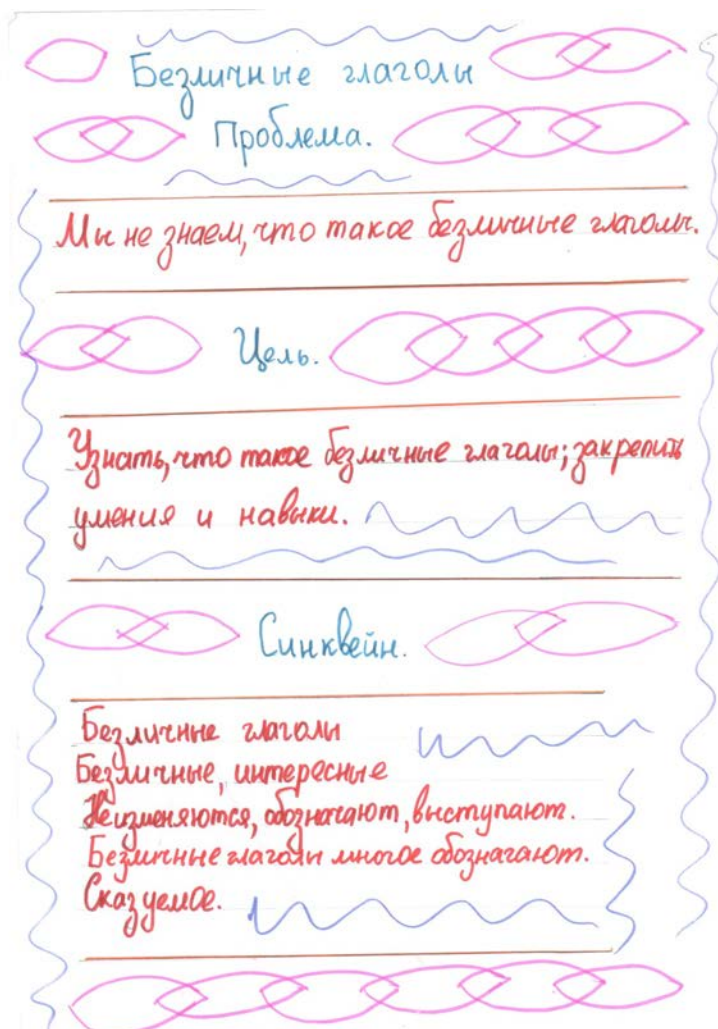 Безличные глаголы
Проблема.
Мы не знаем, что такое безличные глаголы.
Цель.
Узнать, что такое безличные глаголы; закрепить
умения и навыки.
Синквейн.
Безличные глаголы
Безличные, интересные
Неизменяются, обозначают, выступают.
Безличные глаголы многое обозначают.
Сказуемое.